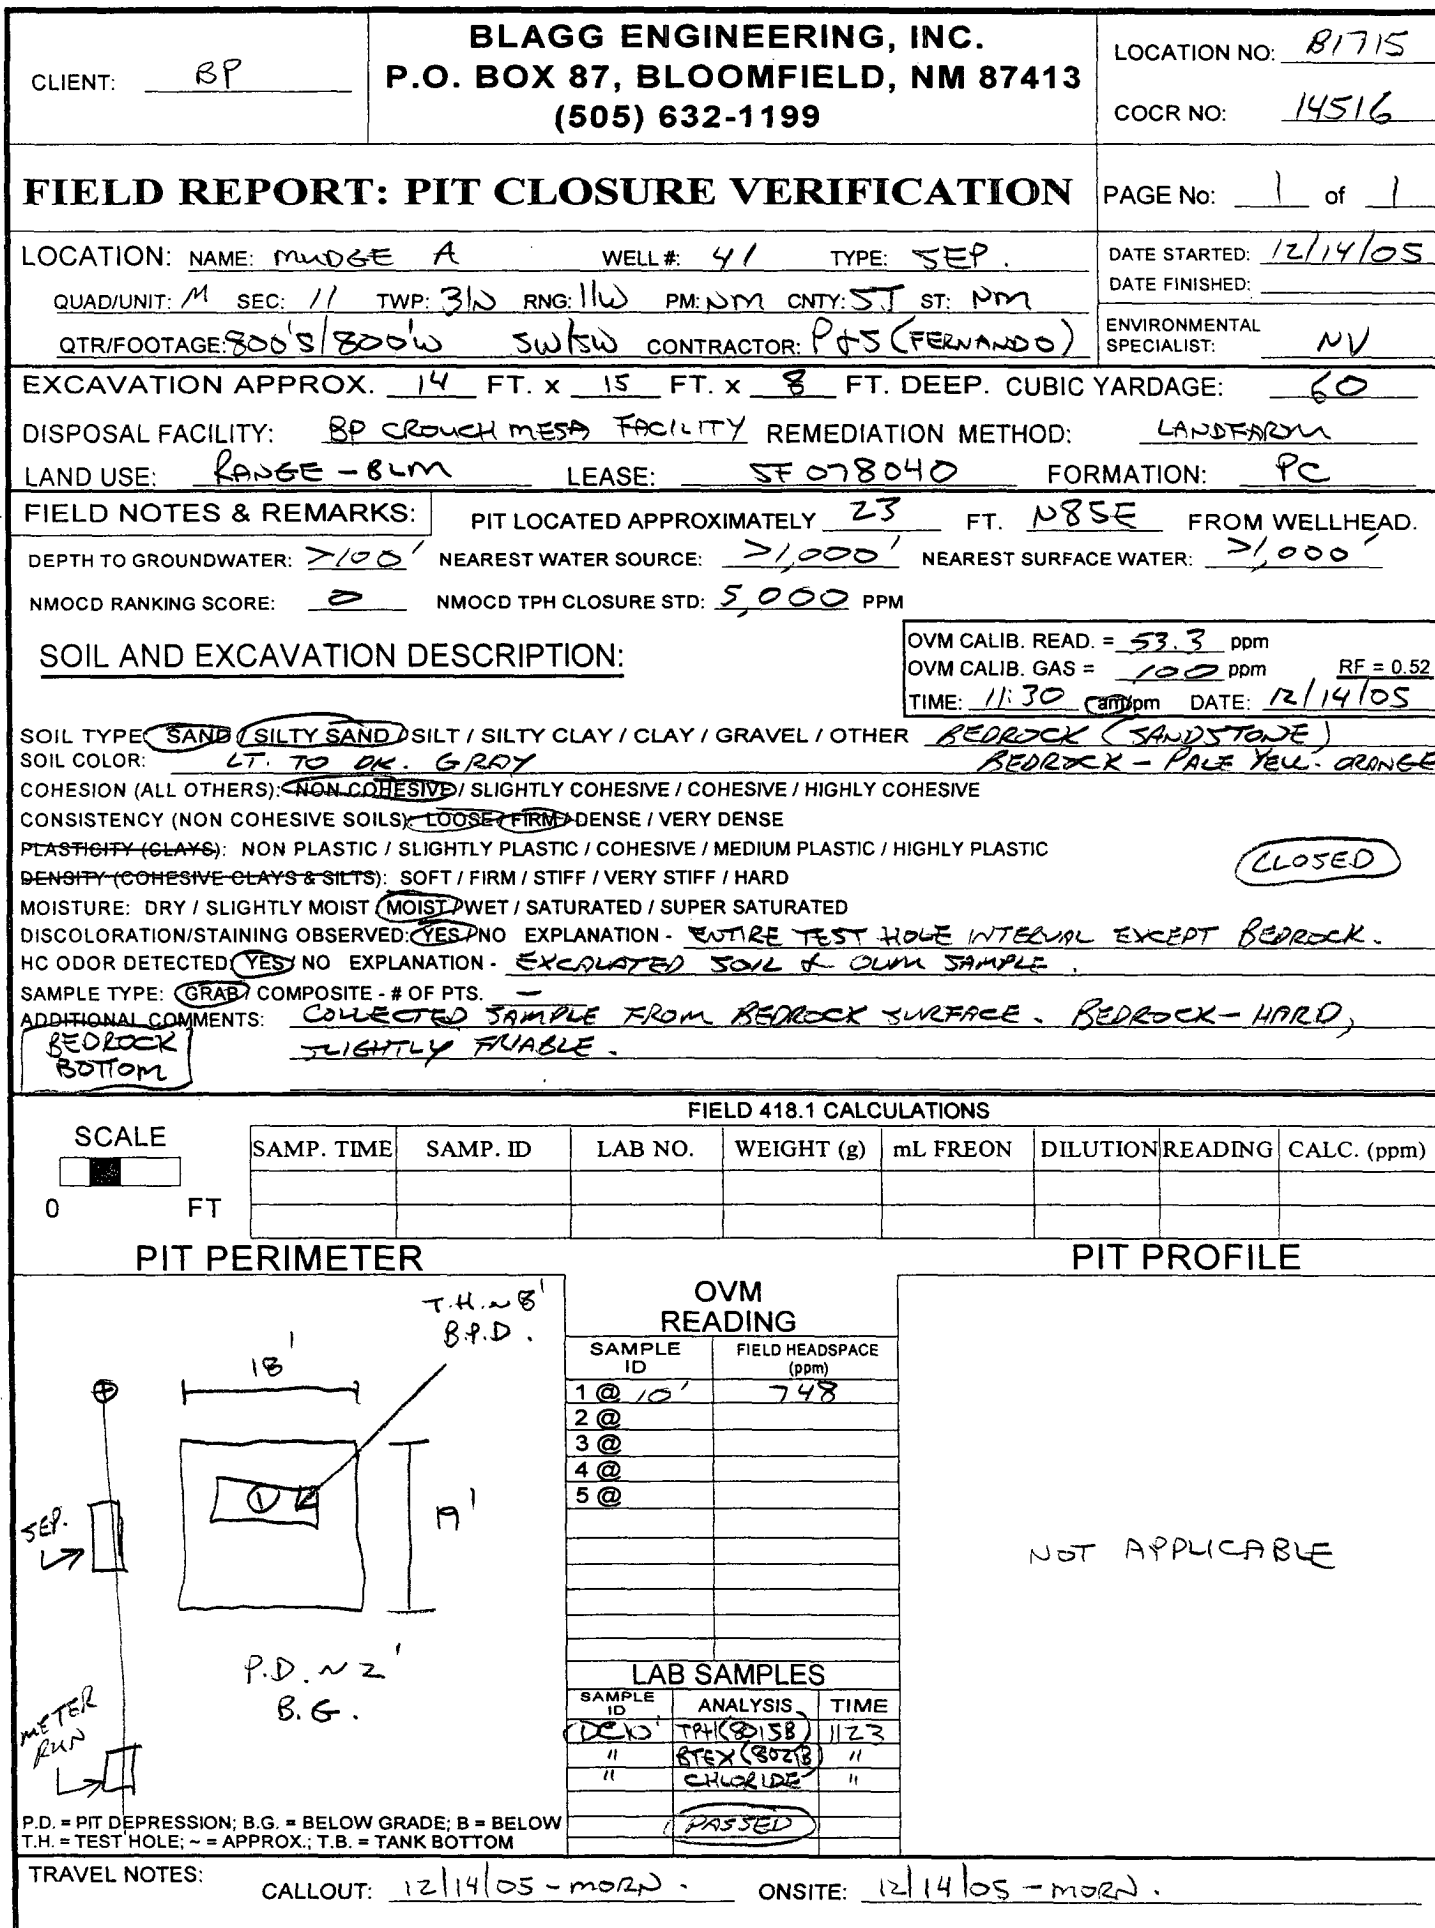 CLIENT: BP
BLAGG ENGINEERING, INC.
P.O. BOX 87, BLOOMFIELD, NM 87413
(505) 632-1199
LOCATION NO: B1715
COCR NO: 14516
FIELD REPORT: PIT CLOSURE VERIFICATION
PAGE No: 1 of 1
LOCATION: NAME: MUDGE A WELL #: 41 TYPE: SEP.
QUAD/UNIT: M SEC: 11 TWP: 31N RNG: 11W PM: NM CNTY: SJ ST: NM
QTR/FOOTAGE: 800'S/800'W SW/SW CONTRACTOR: P+S (FERNANDO)
DATE STARTED: 12/14/05
DATE FINISHED:
ENVIRONMENTAL
SPECIALIST: NV
EXCAVATION APPROX. 14 FT. x 15 FT. x 8 FT. DEEP. CUBIC YARDAGE: 60
DISPOSAL FACILITY: BP CROUCH MESA FACILITY REMEDIATION METHOD: LANDFARM
LAND USE: RANGE - BLM LEASE: SF 078040 FORMATION: PC
FIELD NOTES & REMARKS: PIT LOCATED APPROXIMATELY 23 FT. N85E FROM WELLHEAD.
DEPTH TO GROUNDWATER: >100' NEAREST WATER SOURCE: >1,000' NEAREST SURFACE WATER: >1,000'
NMOCD RANKING SCORE: 0 NMOCD TPH CLOSURE STD: 5,000 PPM
SOIL AND EXCAVATION DESCRIPTION:
OVM CALIB. READ. = 53.3 ppm
OVM CALIB. GAS = 100 ppm RF = 0.52
TIME: 11:30 am/pm DATE: 12/14/05
SOIL TYPE: SAND / SILTY SAND / SILT / SILTY CLAY / CLAY / GRAVEL / OTHER BEDROCK (SANDSTONE)
SOIL COLOR: LT. TO DK. GRAY BEDROCK - PALE YELL. ORANGE
COHESION (ALL OTHERS): NON COHESIVE / SLIGHTLY COHESIVE / COHESIVE / HIGHLY COHESIVE
CONSISTENCY (NON COHESIVE SOILS): LOOSE / FIRM / DENSE / VERY DENSE
PLASTICITY (CLAYS): NON PLASTIC / SLIGHTLY PLASTIC / COHESIVE / MEDIUM PLASTIC / HIGHLY PLASTIC
DENSITY (COHESIVE CLAYS & SILTS): SOFT / FIRM / STIFF / VERY STIFF / HARD
CLOSED
MOISTURE: DRY / SLIGHTLY MOIST / MOIST / WET / SATURATED / SUPER SATURATED
DISCOLORATION/STAINING OBSERVED: YES / NO EXPLANATION - ENTIRE TEST HOLE INTERVAL EXCEPT BEDROCK.
HC ODOR DETECTED: YES / NO EXPLANATION - EXCAVATED SOIL & OVM SAMPLE.
SAMPLE TYPE: GRAB / COMPOSITE - # OF PTS. —
ADDITIONAL COMMENTS: COLLECTED SAMPLE FROM BEDROCK SURFACE. BEDROCK - HARD,
SLIGHTLY FRIABLE.
BEDROCK
BOTTOM
FIELD 418.1 CALCULATIONS
SCALE
0 FT
SAMP. TIME SAMP. ID LAB NO. WEIGHT (g) mL FREON DILUTION READING CALC. (ppm)
PIT PERIMETER
T.H. ~ 8'
B.P.D.
18'
19'
1
SEP.
METER
RUN
P.D. ~ 2'
B.G.
P.D. = PIT DEPRESSION; B.G. = BELOW GRADE; B = BELOW
T.H. = TEST HOLE; ~ = APPROX.; T.B. = TANK BOTTOM
OVM
READING
SAMPLE ID FIELD HEADSPACE (ppm)
1 @ 10' 748
2 @
3 @
4 @
5 @
LAB SAMPLES
SAMPLE ID ANALYSIS TIME
①@10' TPH (8015B) 1123
" BTEX (8021B) "
" CHLORIDE "
PASSED
PIT PROFILE
NOT APPLICABLE
TRAVEL NOTES: CALLOUT: 12/14/05 - MORN. ONSITE: 12/14/05 - MORN.